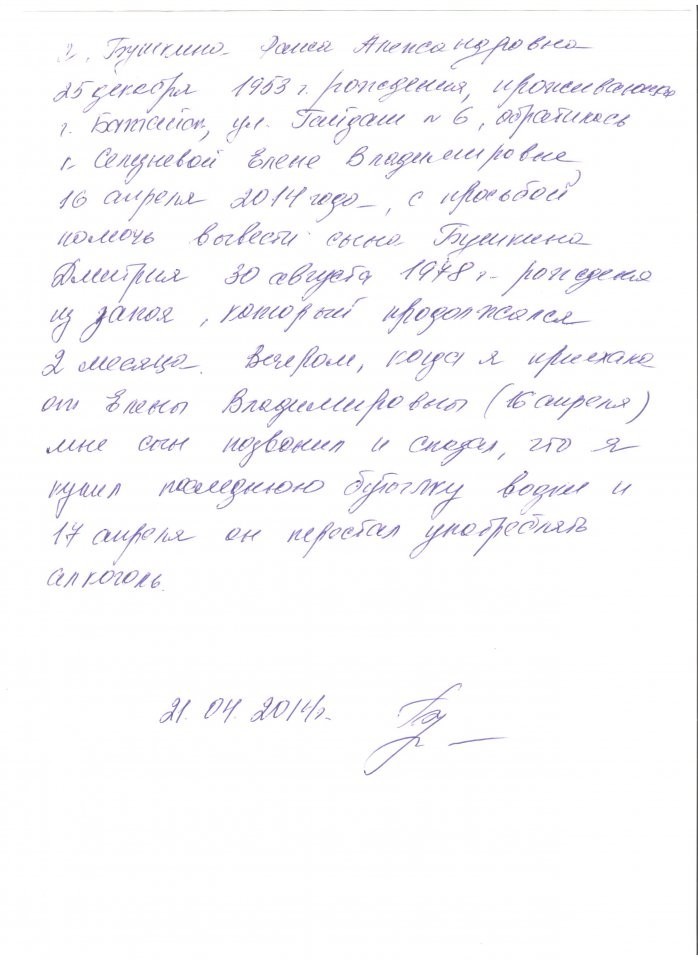 Я, Бушкина Раиса Александровна
25 декабря 1953 г. рождения, проживающая
г. Батайск, ул. Гайдаш № 6, обратилась
к Селезневой Елене Владимировне
16 апреля 2014 года, с просьбой
помочь вывести сына Бушкина
Дмитрия 30 августа 1978 г. рождения
из запоя, который продолжался
2 месяца. Вечером, когда я приехала
от Елены Владимировны (16 апреля)
мне сын позвонил и сказал, что я
купил последнюю бутылку водки и
17 апреля он перестал употреблять
алкоголь.
21. 04. 2014г.